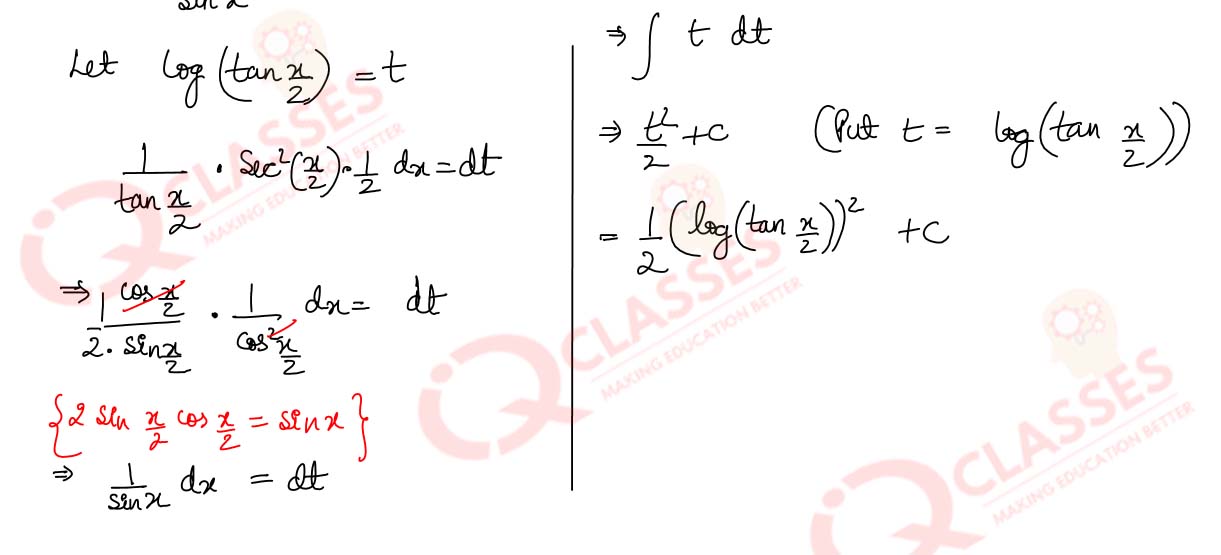 sin x
Let log(tan x/2) = t
1/(tan x/2) · Sec²(x/2) · 1/2 dx = dt
⇒ 1/2 · (cos x/2)/(sin x/2) · 1/(cos² x/2) dx = dt
{2 sin x/2 cos x/2 = sin x}
⇒ 1/(sin x) dx = dt
⇒ ∫ t dt
⇒ t²/2 + C (Put t = log(tan x/2))
= 1/2 (log(tan x/2))² + C
IQ CLASSES
MAKING EDUCATION BETTER
IQ CLASSES
MAKING EDUCATION BETTER
IQ CLASSES
MAKING EDUCATION BETTER